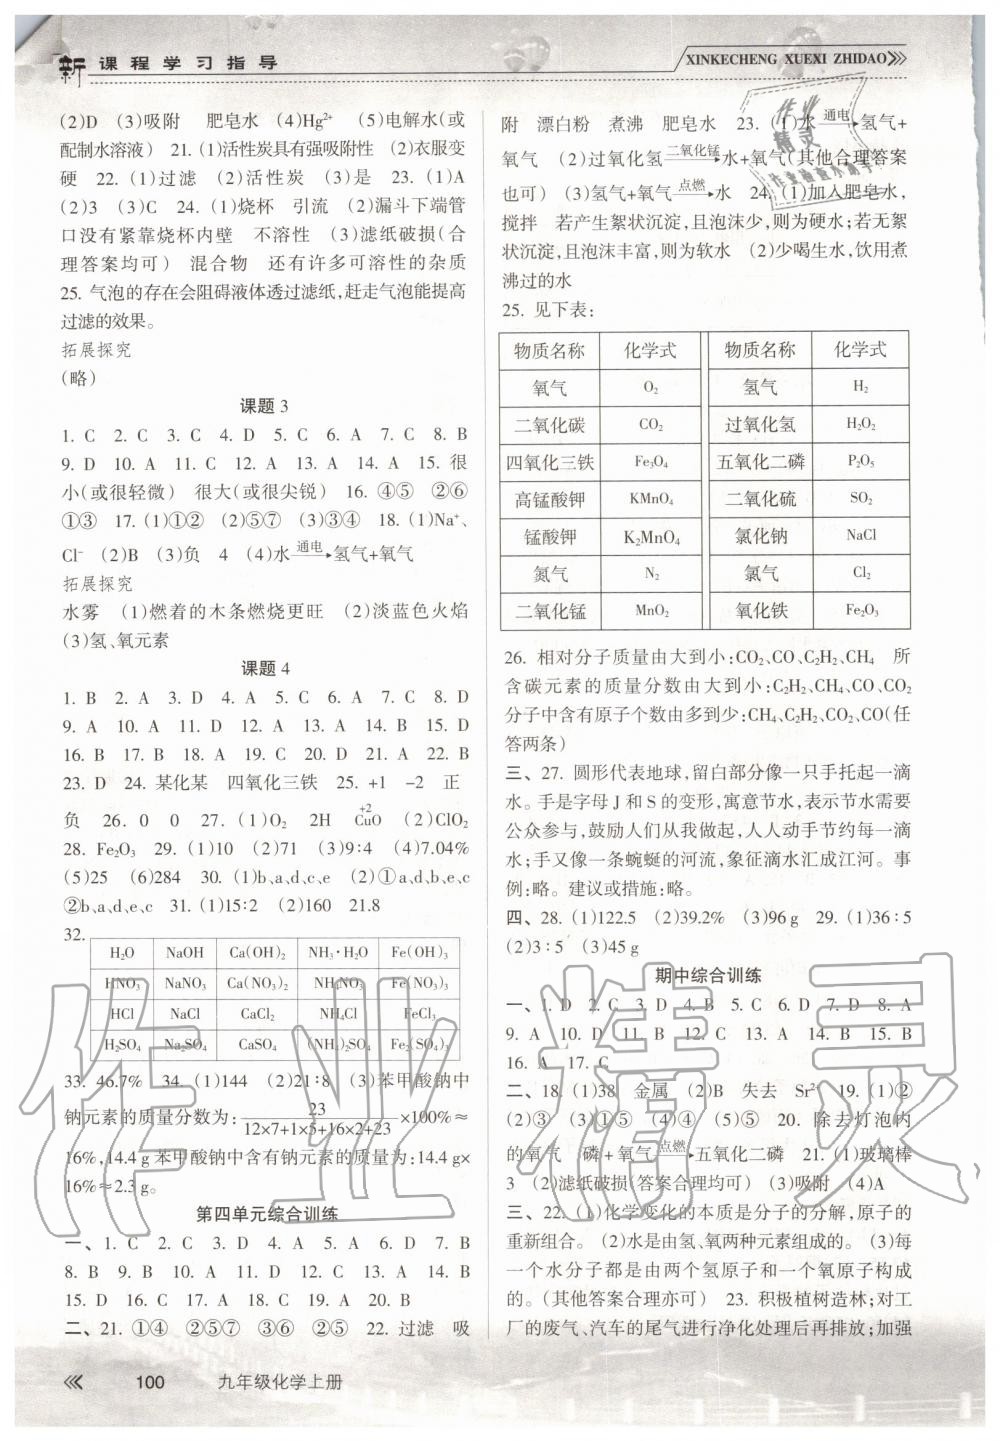 新课程学习指导
XINKECHENG XUEXI ZHIDAO
(2)D (3)吸附 肥皂水 (4)Hg²⁺ (5)电解水(或
配制水溶液) 21. (1)活性炭具有强吸附性 (2)衣服变
硬 22. (1)过滤 (2)活性炭 (3)是 23. (1)A
(2)3 (3)C 24. (1)烧杯 引流 (2)漏斗下端管
口没有紧靠烧杯内壁 不溶性 (3)滤纸破损(合
理答案均可) 混合物 还有许多可溶性的杂质
25. 气泡的存在会阻碍液体透过滤纸,赶走气泡能提高
过滤的效果。
拓展探究
(略)
课题 3
1. C 2. C 3. C 4. D 5. C 6. A 7. C 8. B
9. D 10. A 11. C 12. A 13. A 14. A 15. 很
小(或很轻微) 很大(或很尖锐) 16. ④⑤ ②⑥
①③ 17. (1)①② (2)⑤⑦ (3)③④ 18. (1)Na⁺、
Cl⁻ (2)B (3)负 4 (4)水 —通电→ 氢气+氧气
拓展探究
水雾 (1)燃着的木条燃烧更旺 (2)淡蓝色火焰
(3)氢、氧元素
课题 4
1. B 2. A 3. D 4. A 5. C 6. A 7. C 8. D
9. A 10. A 11. D 12. A 13. A 14. B 15. D
16. B 17. B 18. A 19. C 20. D 21. A 22. B
23. D 24. 某化某 四氧化三铁 25. +1 -2 正
负 26. 0 0 27. (1)O₂ 2H +2 CuO (2)ClO₂
28. Fe₂O₃ 29. (1)10 (2)71 (3)9∶4 (4)7.04%
(5)25 (6)284 30. (1)b、a、d、c、e (2)①a、d、b、e、c
②b、a、d、e、c 31. (1)15∶2 (2)160 21.8
32.
H₂O NaOH Ca(OH)₂ NH₃·H₂O Fe(OH)₃
HNO₃ NaNO₃ Ca(NO₃)₂ NH₄NO₃ Fe(NO₃)₃
HCl NaCl CaCl₂ NH₄Cl FeCl₃
H₂SO₄ Na₂SO₄ CaSO₄ (NH₄)₂SO₄ Fe₂(SO₄)₃
33. 46.7% 34. (1)144 (2)21∶8 (3)苯甲酸钠中
钠元素的质量分数为: 23/(12×7+1×5+16×2+23) ×100%≈
16%,14.4 g 苯甲酸钠中含有钠元素的质量为:14.4 g×
16%≈2.3 g。
第四单元综合训练
一、1. C 2. C 3. C 4. A 5. A 6. D 7. B
8. B 9. B 10. A 11. D 12. B 13. A 14. B
15. D 16. C 17. A 18. C 19. A 20. B
二、21. ①④ ②⑤⑦ ③⑥ ②⑤ 22. 过滤 吸
附 漂白粉 煮沸 肥皂水 23. (1)水 —通电→ 氢气+
氧气 (2)过氧化氢 —二氧化锰→ 水+氧气(其他合理答案
也可) (3)氢气+氧气 —点燃→ 水 24. (1)加入肥皂水,
搅拌 若产生絮状沉淀,且泡沫少,则为硬水;若无絮
状沉淀,且泡沫丰富,则为软水 (2)少喝生水,饮用煮
沸过的水
25. 见下表:
物质名称 化学式 物质名称 化学式
氧气 O₂ 氢气 H₂
二氧化碳 CO₂ 过氧化氢 H₂O₂
四氧化三铁 Fe₃O₄ 五氧化二磷 P₂O₅
高锰酸钾 KMnO₄ 二氧化硫 SO₂
锰酸钾 K₂MnO₄ 氯化钠 NaCl
氮气 N₂ 氯气 Cl₂
二氧化锰 MnO₂ 氧化铁 Fe₂O₃
26. 相对分子质量由大到小:CO₂、CO、C₂H₂、CH₄ 所
含碳元素的质量分数由大到小:C₂H₂、CH₄、CO、CO₂
分子中含有原子个数由多到少:CH₄、C₂H₂、CO₂、CO(任
答两条)
三、27. 圆形代表地球,留白部分像一只手托起一滴
水。手是字母 J 和 S 的变形,寓意节水,表示节水需要
公众参与,鼓励人们从我做起,人人动手节约每一滴
水;手又像一条蜿蜒的河流,象征滴水汇成江河。事
例:略。建议或措施:略。
四、28. (1)122.5 (2)39.2% (3)96 g 29. (1)36∶5
(2)3∶5 (3)45 g
期中综合训练
一、1. D 2. C 3. D 4. B 5. C 6. D 7. D 8. A
9. A 10. D 11. B 12. C 13. A 14. B 15. B
16. A 17. C
二、18. (1)38 金属 (2)B 失去 Sr²⁺ 19. (1)②
(2)③ (3)①⑤ (4)④ (5)⑤ 20. 除去灯泡内
的氧气 磷+氧气 —点燃→ 五氧化二磷 21. (1)玻璃棒
3 (2)滤纸破损(答案合理均可) (3)吸附 (4)A
三、22. (1)化学变化的本质是分子的分解,原子的
重新组合。 (2)水是由氢、氧两种元素组成的。 (3)每
一个水分子都是由两个氢原子和一个氧原子构成
的。(其他答案合理亦可) 23. 积极植树造林;对工
厂的废气、汽车的尾气进行净化处理后再排放;加强
100 九年级化学上册
作业精灵
作业精灵